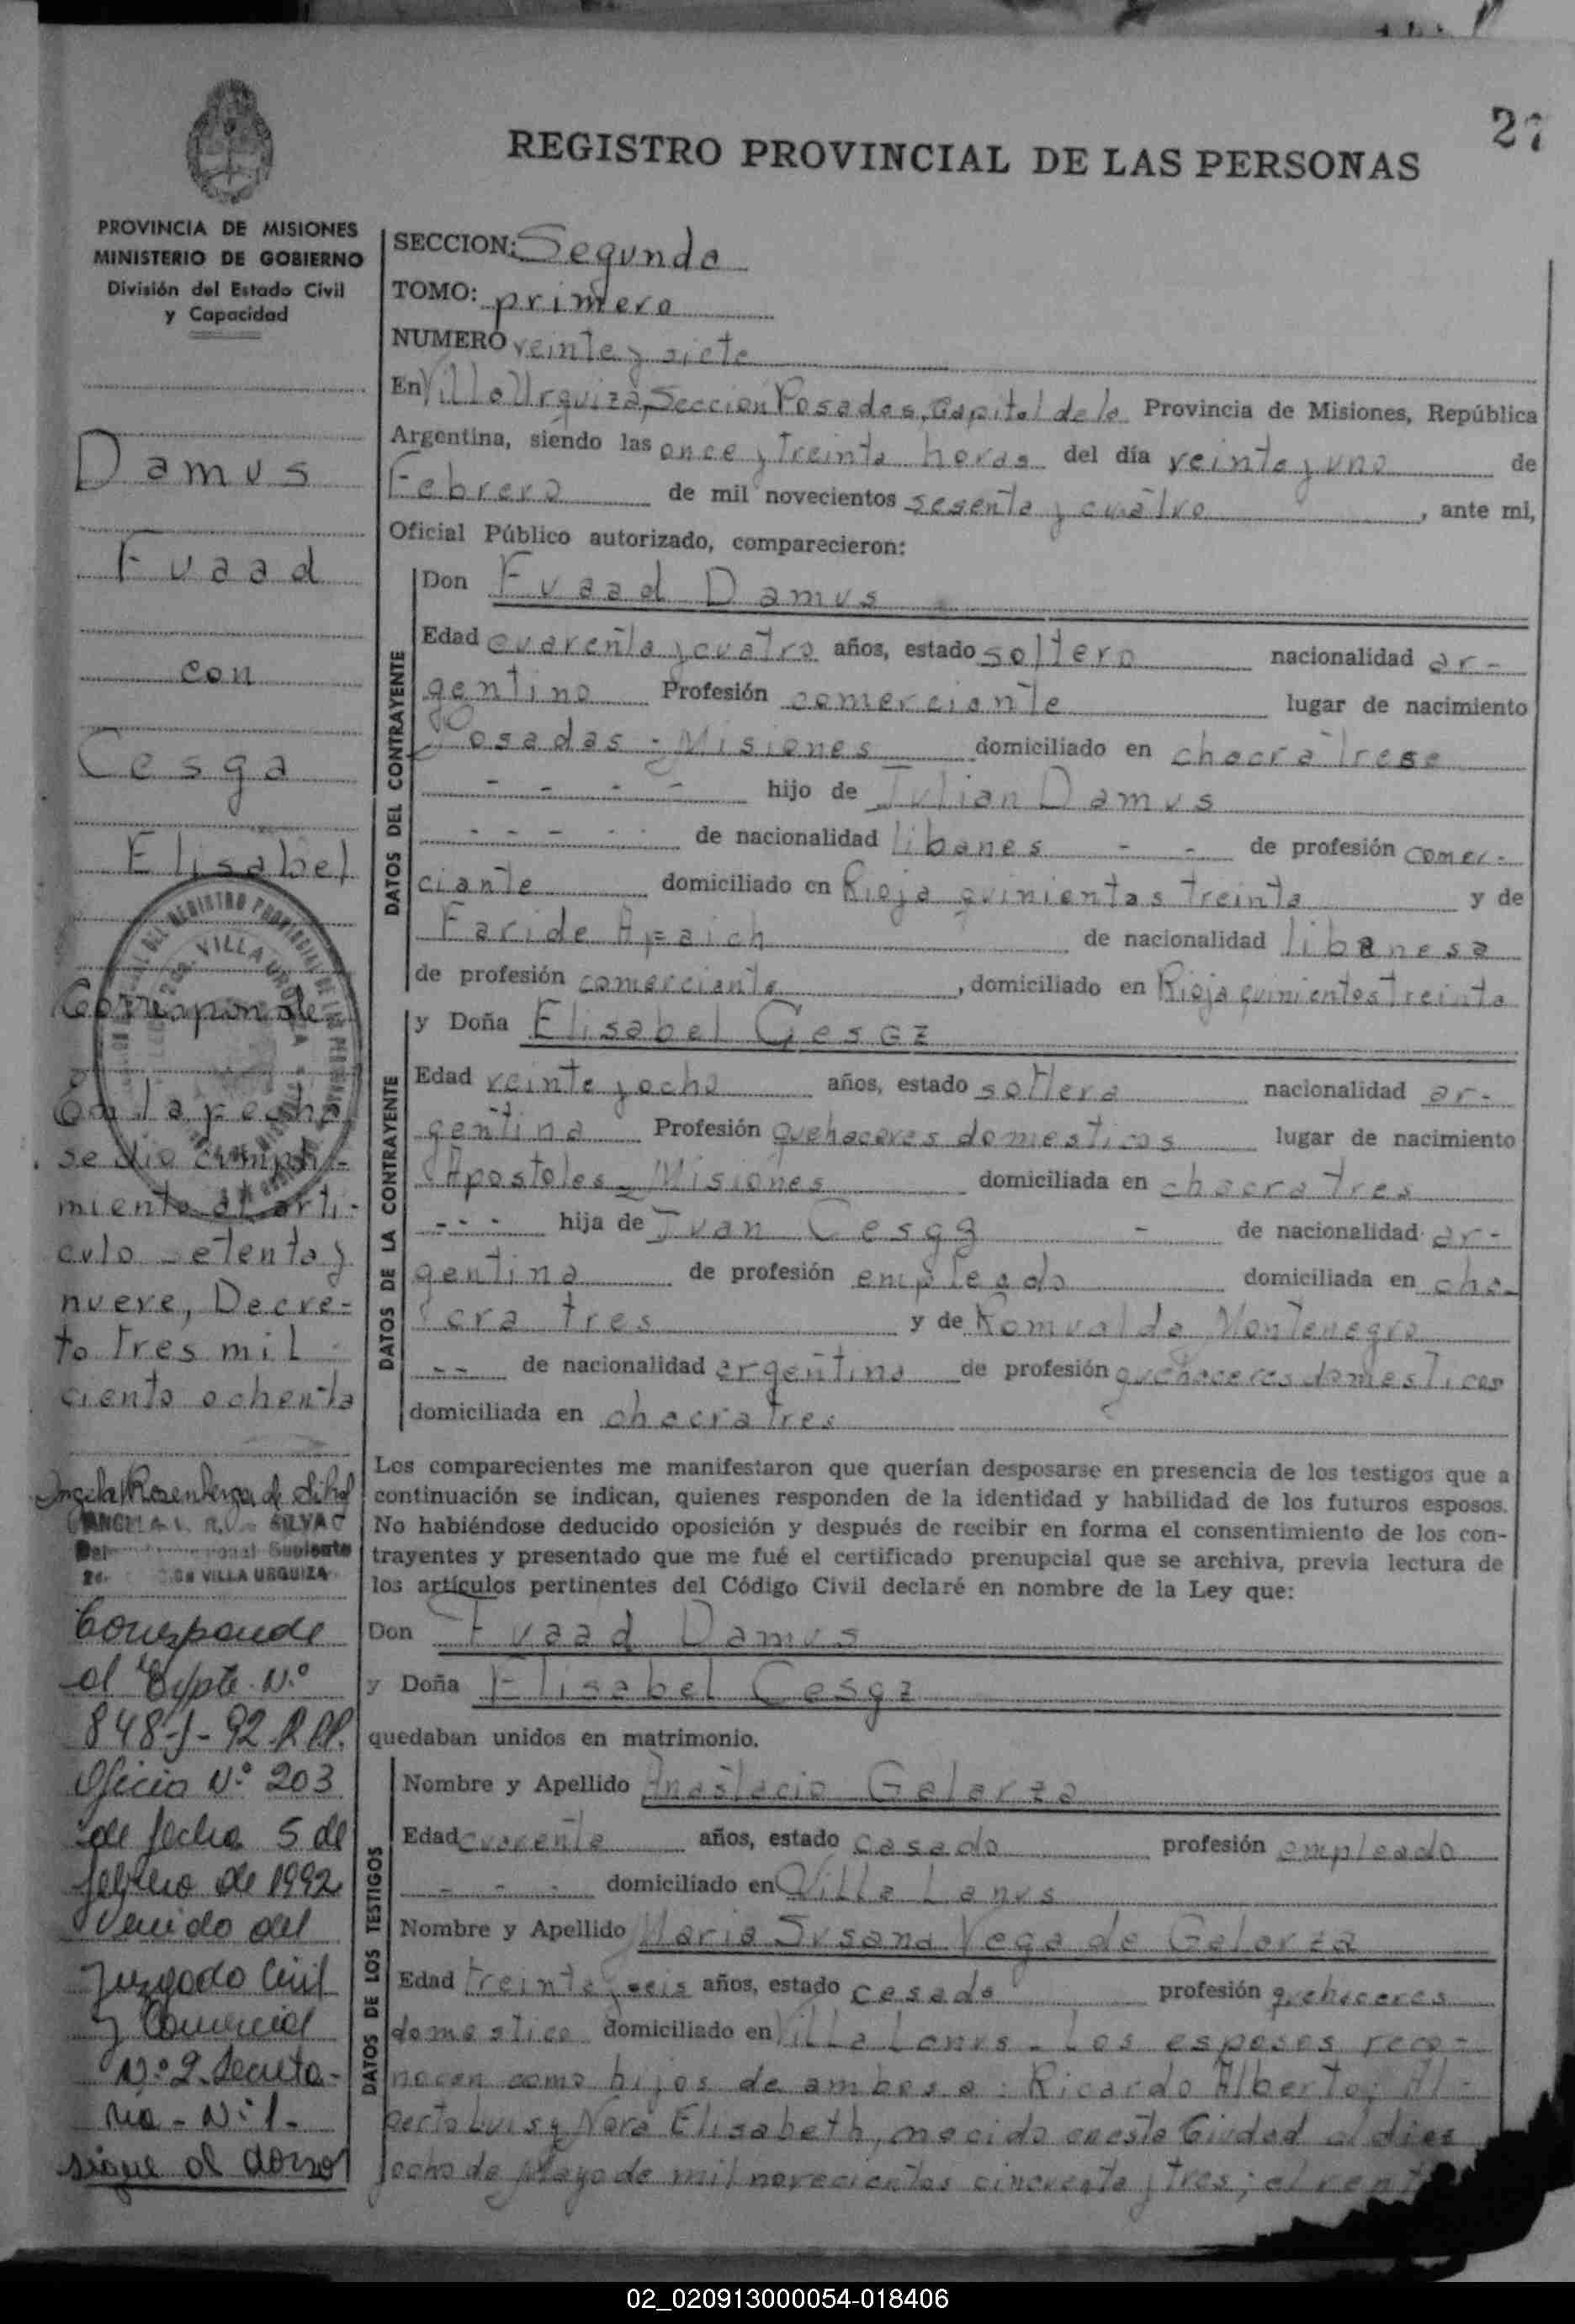 27
REGISTRO PROVINCIAL DE LAS PERSONAS
PROVINCIA DE MISIONES
MINISTERIO DE GOBIERNO
División del Estado Civil
y Capacidad
Damus
Fuaad
con
Cesga
Elisabel
Corresponde
En la fecha
se dio cumpli-
miento al arti-
culo setenta y
nueve, Decre-
to tres mil
ciento ochenta
VILLA URQUIZA
Corresponde
al Expte. N.º
848-J-92-R.PP.
Oficio N.º 203
de fecha 5 de
febrero de 1992
Venido del
Juzgado Civil
y Comercial
N.º 2. Secreta-
ria - N.º 1.
sigue al dorso
SECCION: Segunda
TOMO: primero
NUMERO veinte y siete
En Villa Urquiza, Sección Posadas, Capital de la Provincia de Misiones, República
Argentina, siendo las once y treinta horas del día veinte y uno de
Febrero de mil novecientos sesenta y cuatro, ante mi,
Oficial Público autorizado, comparecieron:
DATOS DEL CONTRAYENTE
Don Fuaad Damus
Edad cuarenta y cuatro años, estado soltero nacionalidad ar-
gentino Profesión comerciante lugar de nacimiento
Posadas - Misiones domiciliado en chacra trese
- - - - hijo de Julian Damus
- - - - - de nacionalidad libanes - - de profesión comer-
ciante domiciliado en Rioja quinientas treinta y de
Faride de nacionalidad libanesa
de profesión comerciante, domiciliado en Rioja quinientos treinta
DATOS DE LA CONTRAYENTE
y Doña Elisabel Cesga
Edad veinte y ocho años, estado soltera nacionalidad ar-
gentina Profesión quehaceres domesticos lugar de nacimiento
Apostoles - Misiones domiciliada en chacra tres
- - - hija de Juan Cesga - de nacionalidad ar-
gentina de profesión empleado domiciliada en cha-
cra tres y de Romualda Montenegro
- - de nacionalidad argentina de profesión quehaceres domesticos
domiciliada en chacra tres
Los comparecientes me manifestaron que querían desposarse en presencia de los testigos que a
continuación se indican, quienes responden de la identidad y habilidad de los futuros esposos.
No habiéndose deducido oposición y después de recibir en forma el consentimiento de los con-
trayentes y presentado que me fué el certificado prenupcial que se archiva, previa lectura de
los artículos pertinentes del Código Civil declaré en nombre de la Ley que:
Don Fuaad Damus
y Doña Elisabel Cesga
quedaban unidos en matrimonio.
DATOS DE LOS TESTIGOS
Nombre y Apellido Anastacio Galarza
Edad cuarenta años, estado casado profesión empleado
- - - domiciliado en Villa Lanus
Nombre y Apellido Maria Susana Vega de Galarza
Edad treinta y seis años, estado casada profesión quehaceres
domestico domiciliado en Villa Lanus. Los esposos reco-
nocen como hijos de ambos a: Ricardo Alberto; Al-
berto Luis y Nora Elisabeth, nacido en esta Ciudad el dies
y ocho de Mayo de mil novecientos cincuenta y tres; el
02_020913000054-018406